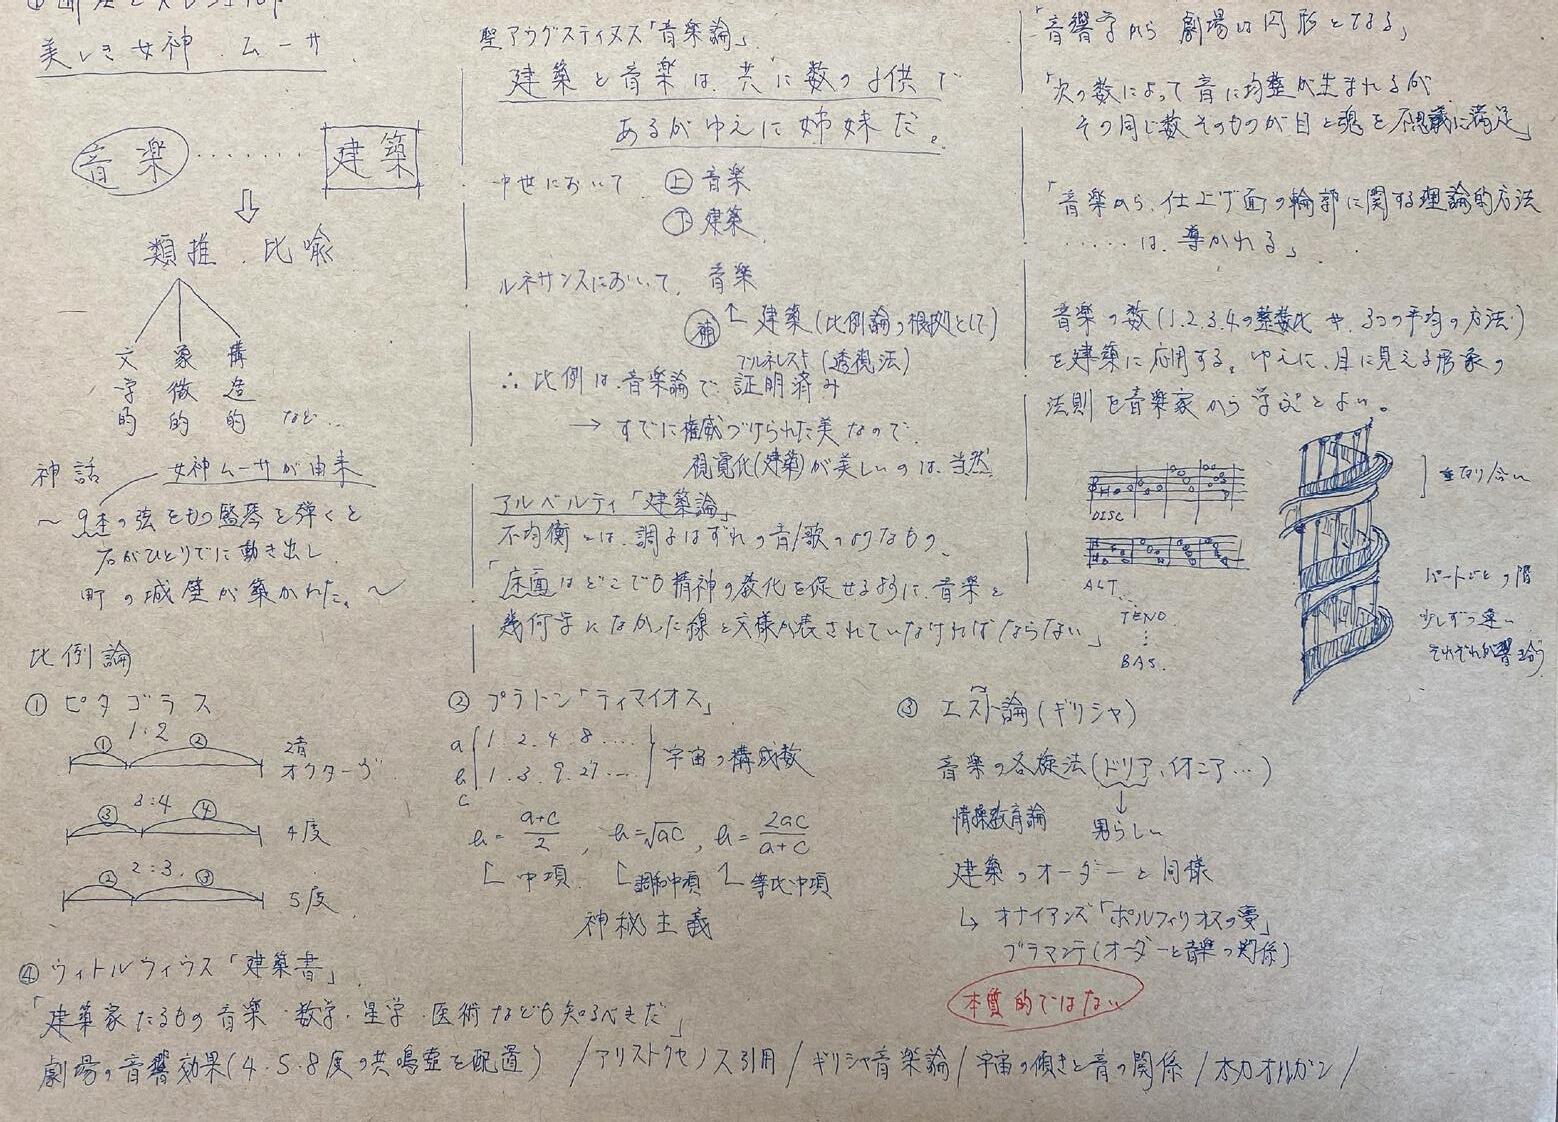 美しき女神 ムーサ
音楽 ······· 建築
類推・比喩
文字的
象徴的
構造的
など…
神話
女神ムーサが由来
〜9本の弦をもつ竪琴を弾くと
石がひとりでに動き出し
町の城壁が築かれた。〜
比例論
① ピタゴラス
1:2
① ②
2音
オクターヴ
3:4
③ ④
4度
2:3
② ③
5度
聖アウグスティヌス「音楽論」
建築と音楽は、共に数の子供で
あるがゆえに姉妹だ。
中世において ㊤音楽
㊦建築
ルネサンスにおいて、音楽
補 ↑ 建築(比例論の根拠として)
ブルネレスキ(透視法)
∴ 比例は、音楽論で証明済み
→ すでに権威づけられた美なので、
視覚化(建築)が美しいのは、当然
アルベルティ「建築論」
不均衡とは、調子はずれの音/歌のようなもの、
「床面はどこでも精神の教化を促せるように、音楽と
幾何学になかった線と文様が表されていなければならない」
② プラトン「ティマイオス」
a 1. 2. 4. 8. ....
b 1. 3. 9. 27. ...
c
宇宙の構成数
b = a+c/2 , b = √ac , b = 2ac/a+c
中項 調和中項 等比中項
神秘主義
「音響学から 劇場は円形となる」
「次の数によって音に均整が生まれるが
その同じ数そのものが目と魂を不思議に満足」
「音楽から、仕上げ面の輪郭に関する理論的方法
······は、導かれる」
音楽の数(1.2.3.4の整数比や、3つの平均の方法)
を建築に応用する。ゆえに、目に見える形象の
法則を音楽家から学ぶとよい。
DISC
ALT.
TENO
BAS.
重なり合い
パートごとの階
少しずつ違い
それぞれが響き合う
③ エートス論(ギリシャ)
音楽の各旋法(ドリア、イオニア…)
情操教育論 男らしい
建築のオーダーと同様
↳ オナイアンズ「ポルフィリオスの夢」
ブラマンテ(オーダーと音楽の関係)
本質的ではない
④ ウィトルウィウス「建築書」
「建築家たるもの音楽・数学・星学・医術なども知るべきだ」
劇場の音響効果(4・5・8度の共鳴壺を配置) /アリストクセノス引用/ギリシャ音楽論/宇宙の傾きと音の関係/水力オルガン/